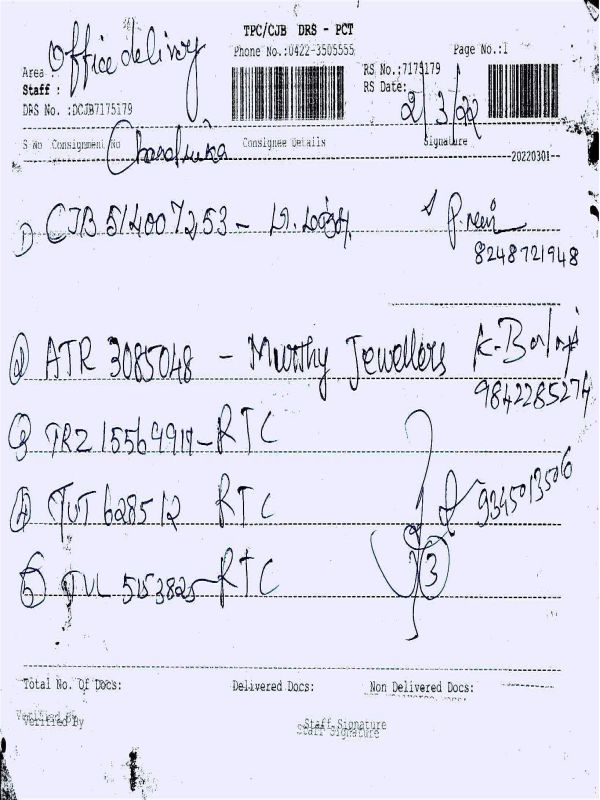 TPC/CJB DRS - PCT
Office delivery
Phone No.:0422-3505555 Page No.:1
Area : RS No.:7175179
Staff : RS Date: 2/3/22
DRS No. :DCJB7175179
S No Consignment No Consignee Details Signature
Chandrika
20220301
1) CJB 514007253 -
8248721948
2) ATR 3085048 - Murthy Jewellers K-Balaji
9842285274
3) TRZ 15569917 - RTC
4) TUT 628512 RTC 9345013506
5) TVL 5153825 - RTC 3
Total No. Of Docs: Delivered Docs: Non Delivered Docs:
Verified By Staff Signature